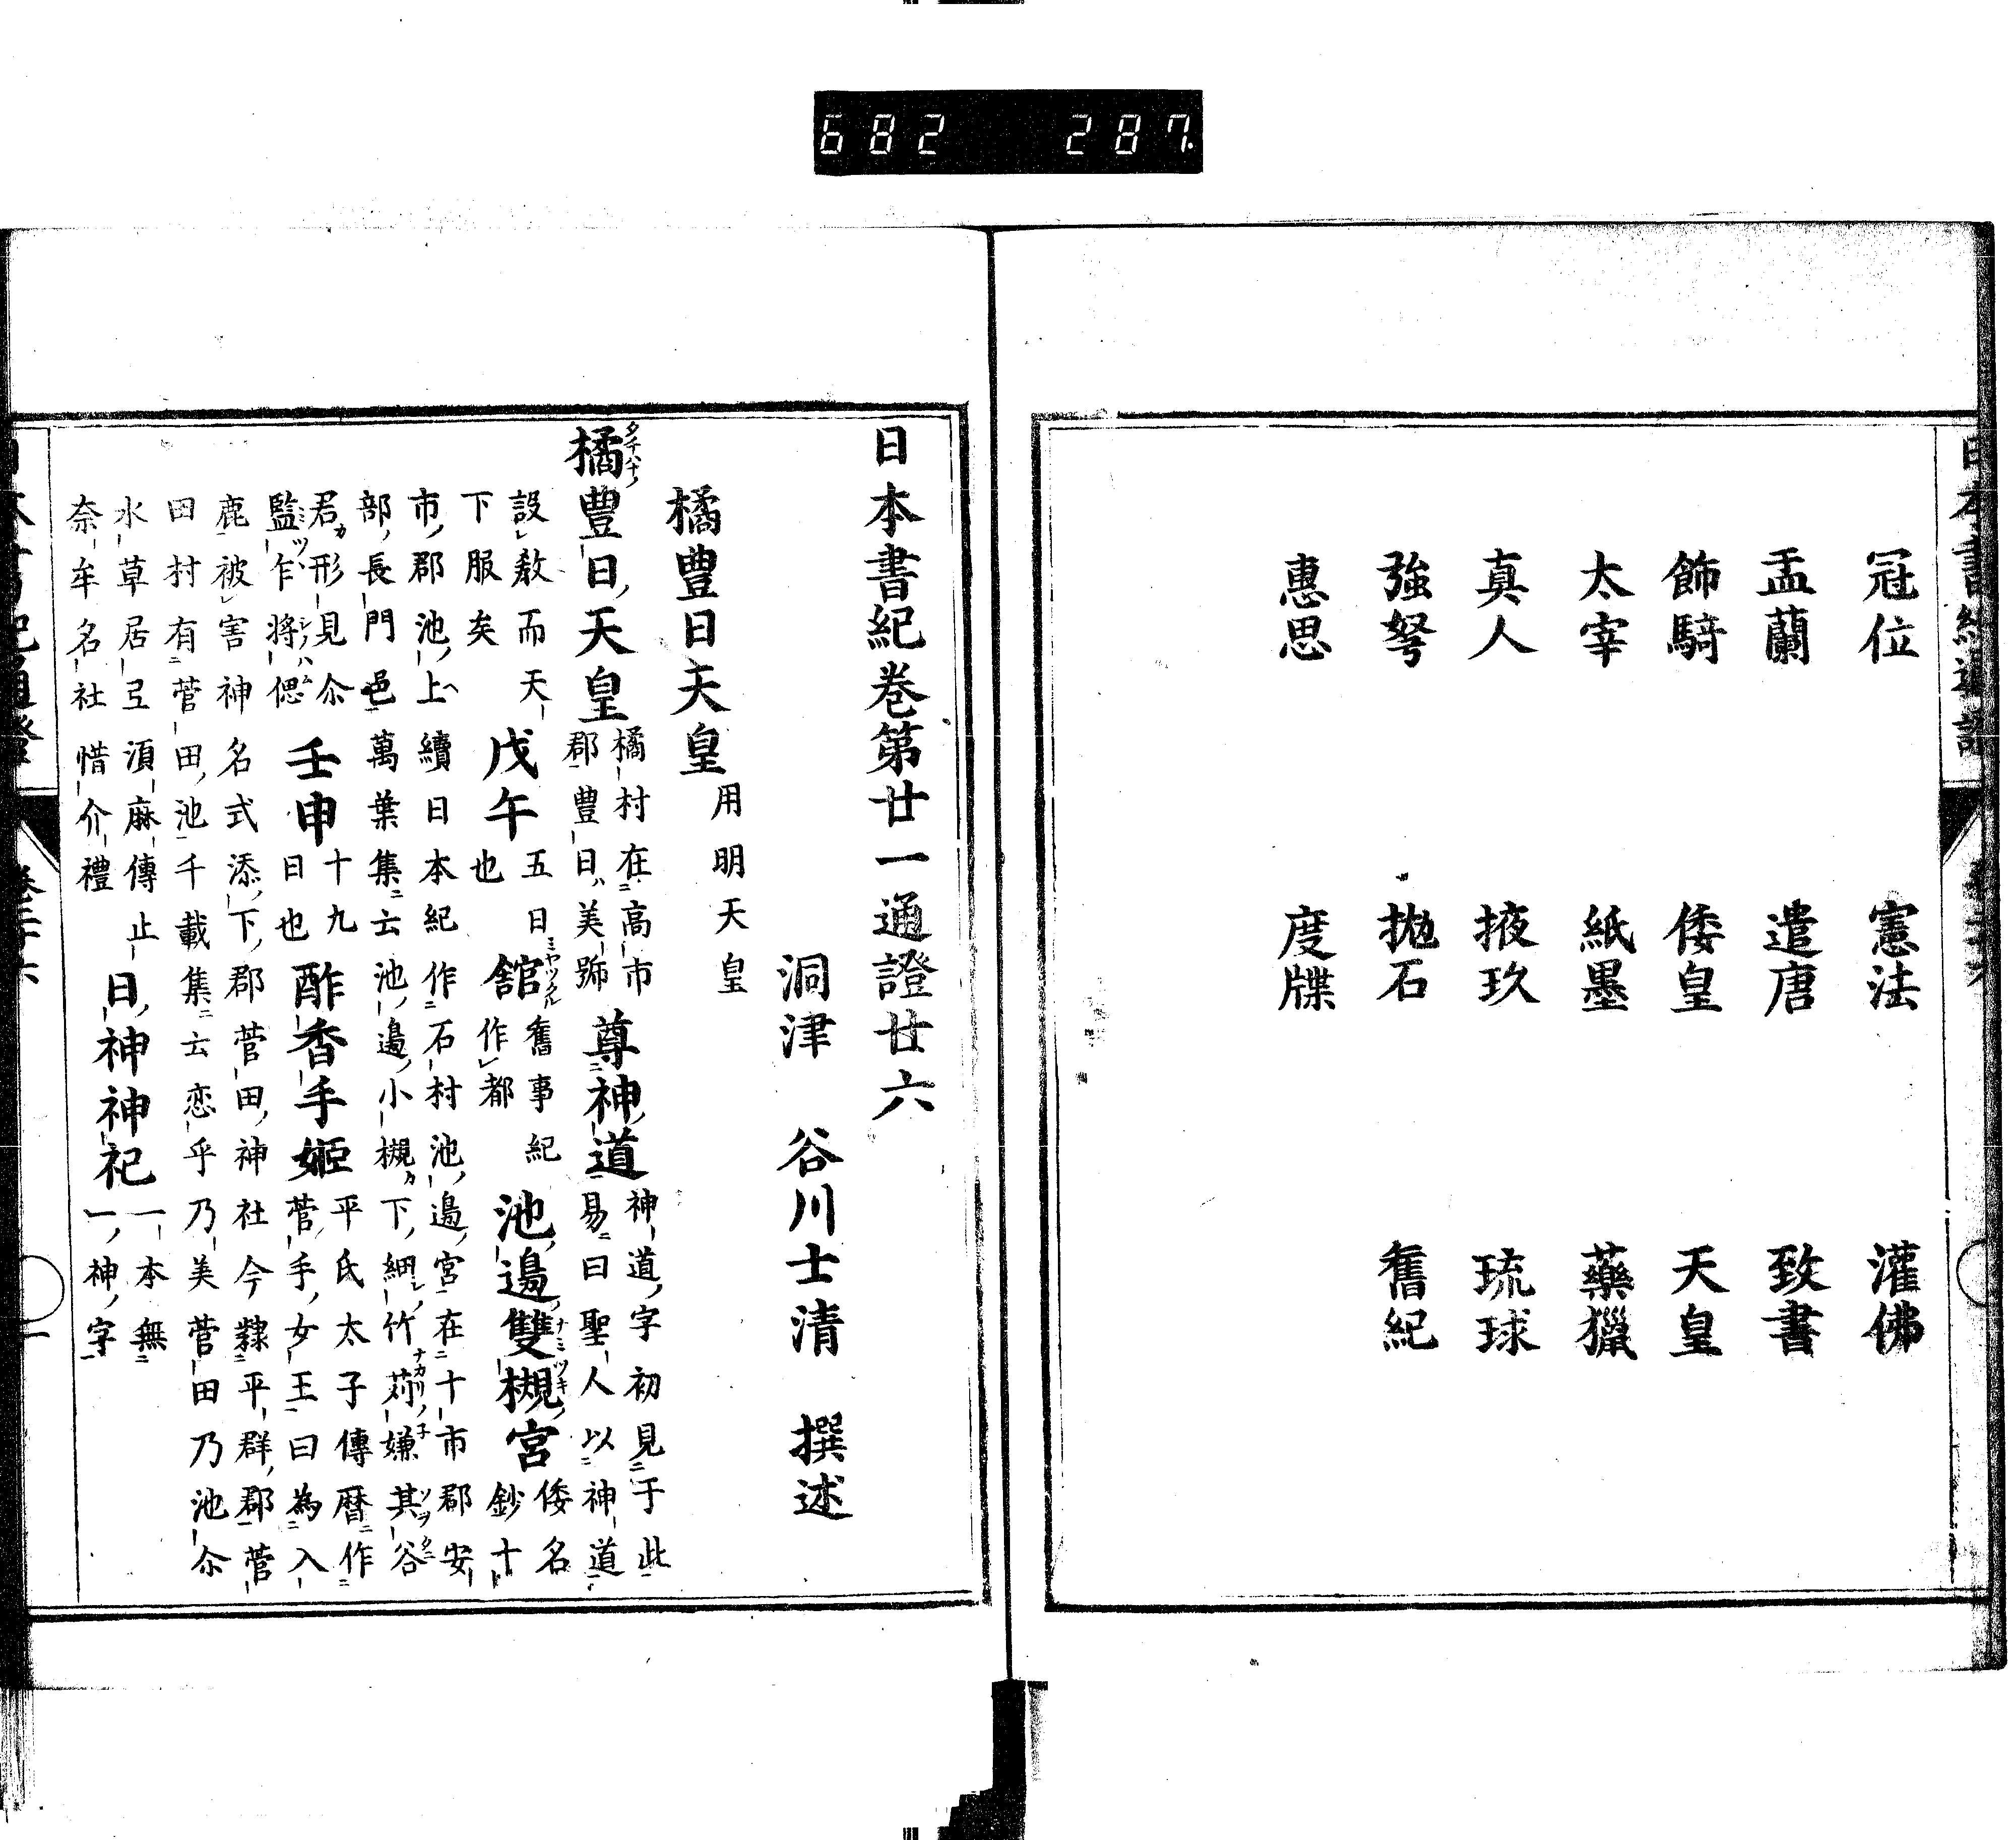 682 287
冠位 憲法 灌佛
盂蘭 遣唐 致書
飾騎 倭皇 天皇
太宰 紙墨 藥獵
真人 掖玖 琉球
強弩 拋石 舊紀
惠思 度牒
日本書紀卷第廿一通證廿六
洞津 谷川士清 撰述
橘豐日天皇 用明天皇
橘豐日天皇 橘村在高市
郡豐日美號 尊神道 神道字初見于此
易曰聖人以神道
設敎而天
下服矣 戊午 五日
也 舘 舊事紀
作都 池邊雙槻宮 倭名
鈔十
市郡池上續日本紀作石村池邊宮在十市郡安
部長門邑萬葉集云池邊小槻下細竹苅嫌其谷
君形見尒
監乍將偲 壬申 十九
日也 酢香手姬 平氏太子傳曆作
菅手女王曰為入
鹿被害神名式添下郡菅田神社今隸平群郡菅
田村有菅田池千載集云恋乎乃美菅田乃池尒
水草居弖湏麻傳止
奈牟名社惜介禮 日神神祀 一本無
一神字